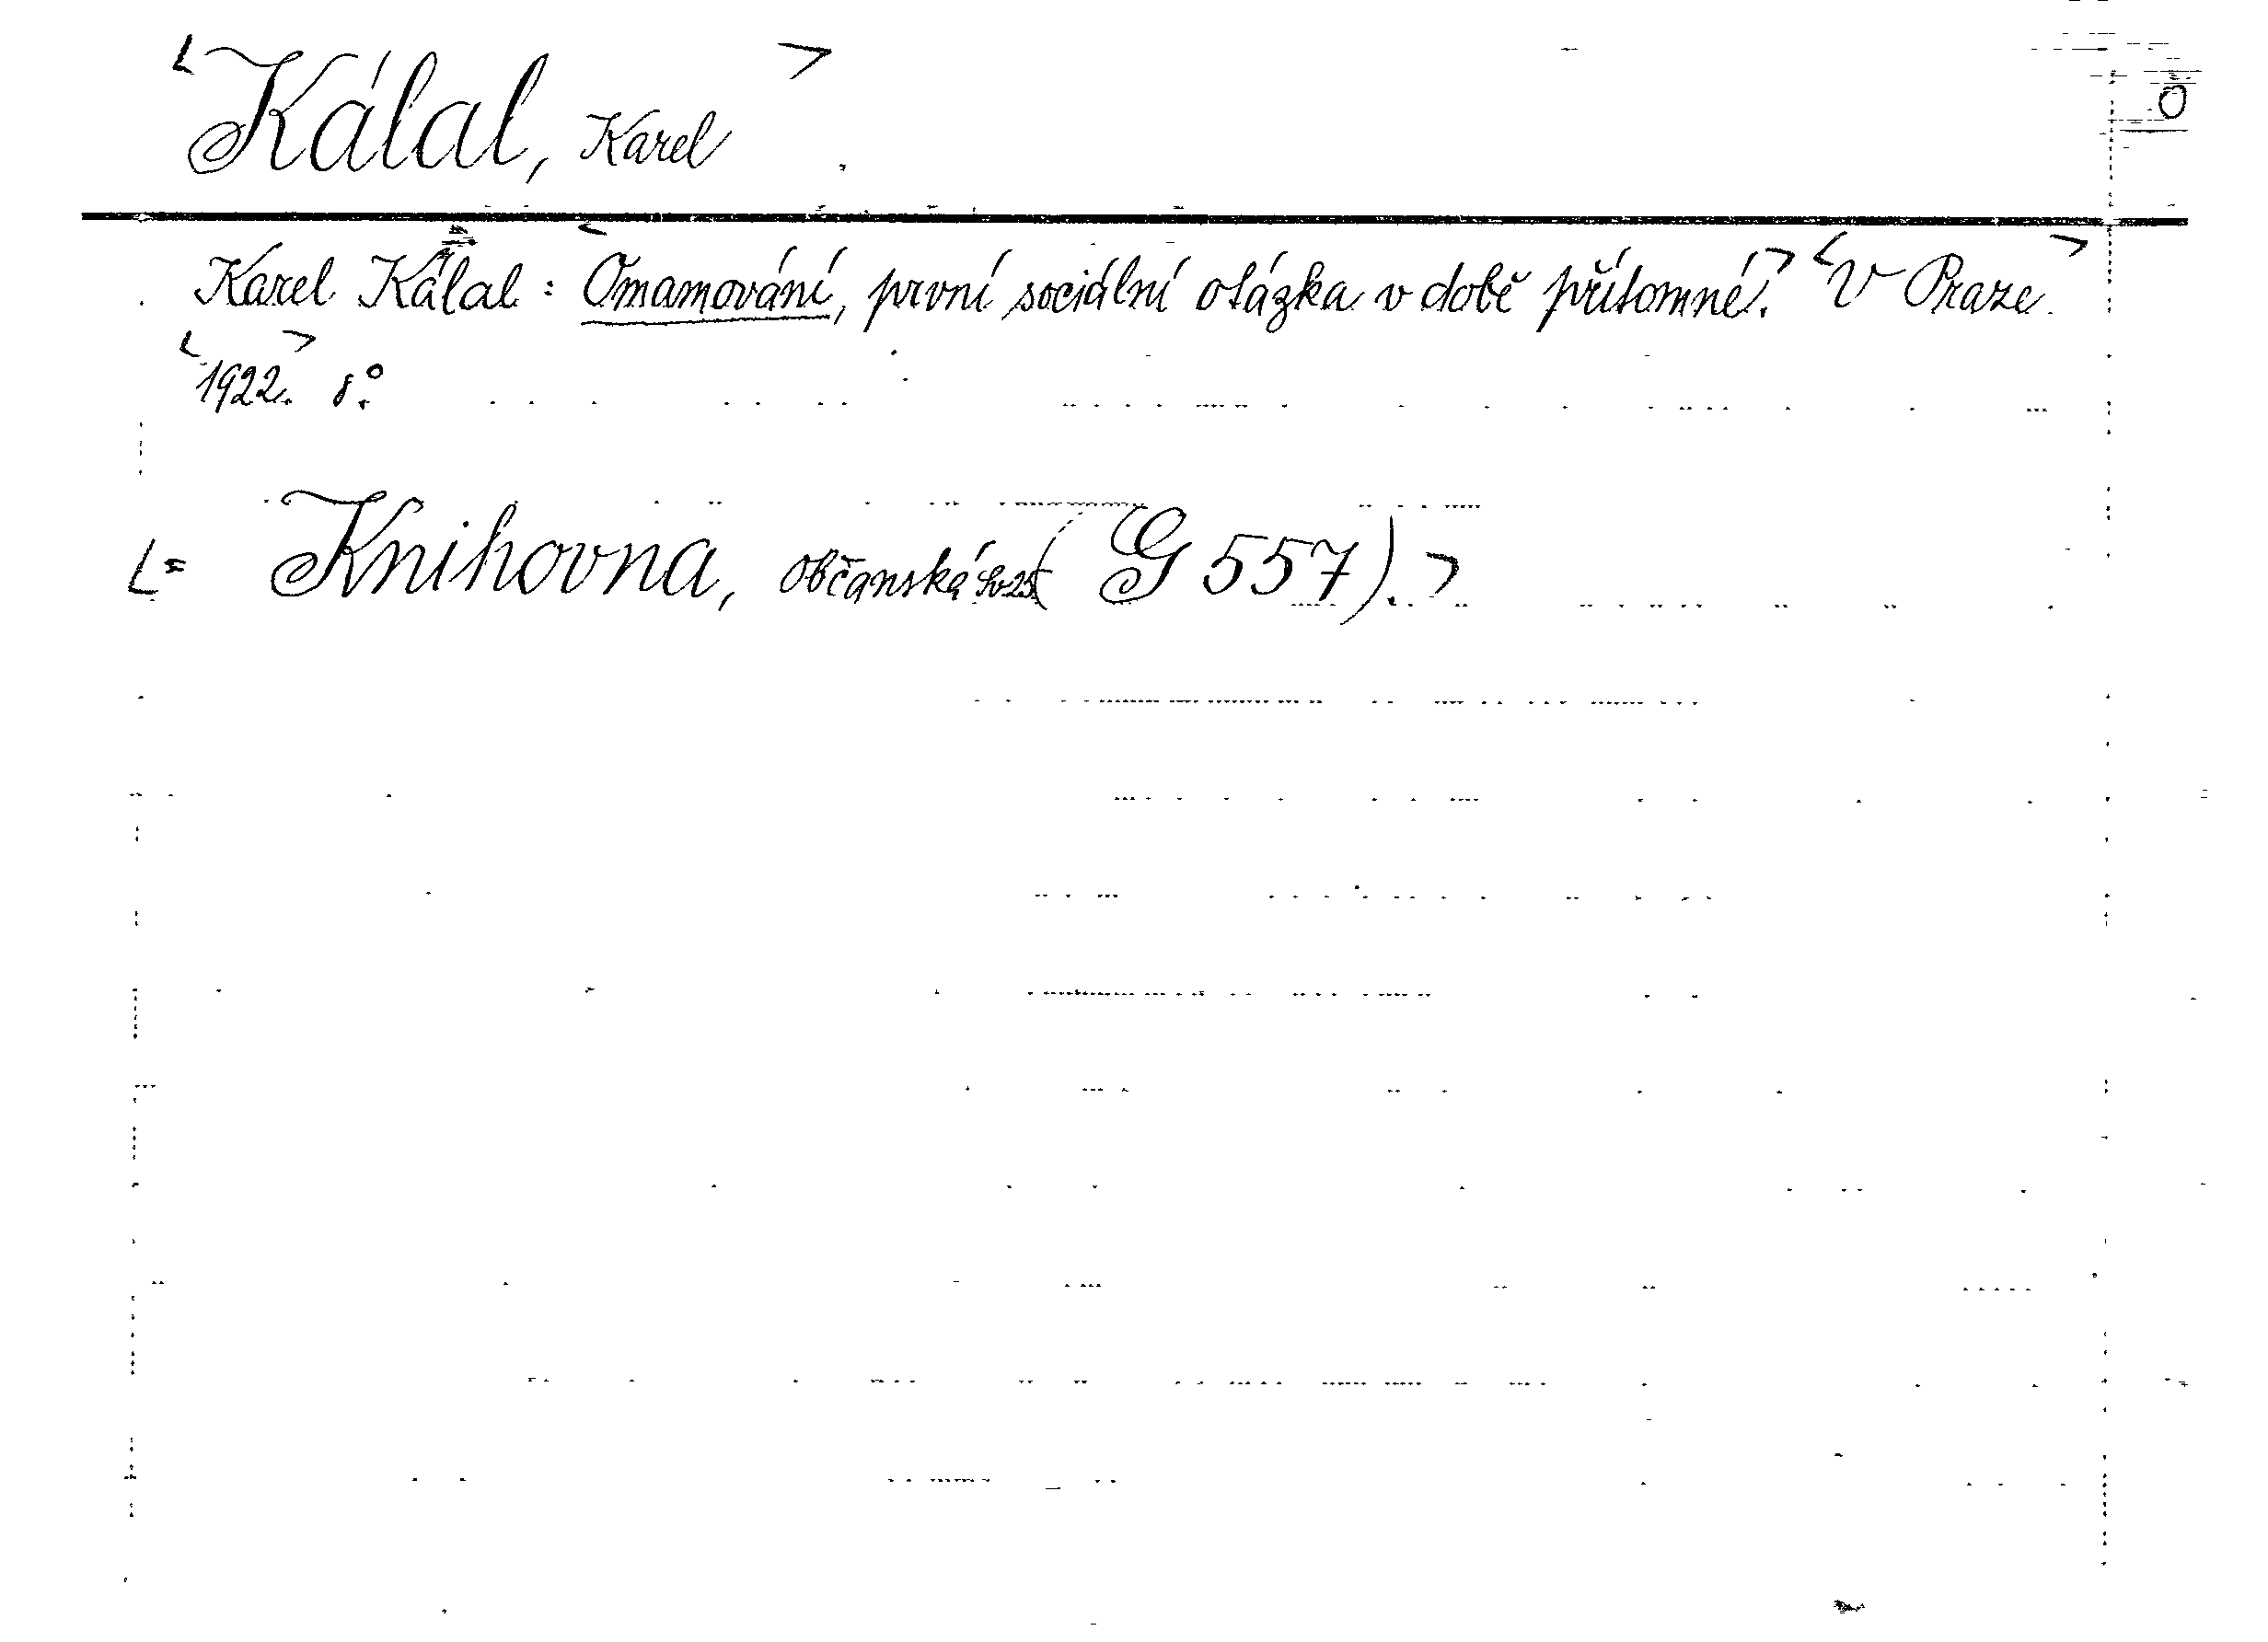 <Kálal, Karel>
O
Karel Kálal: <Omamování, první sociální otázka v době přítomné.> <V Praze>
<1922.> 8°.
<= Knihovna, občanská sv. 25 (G 557).>